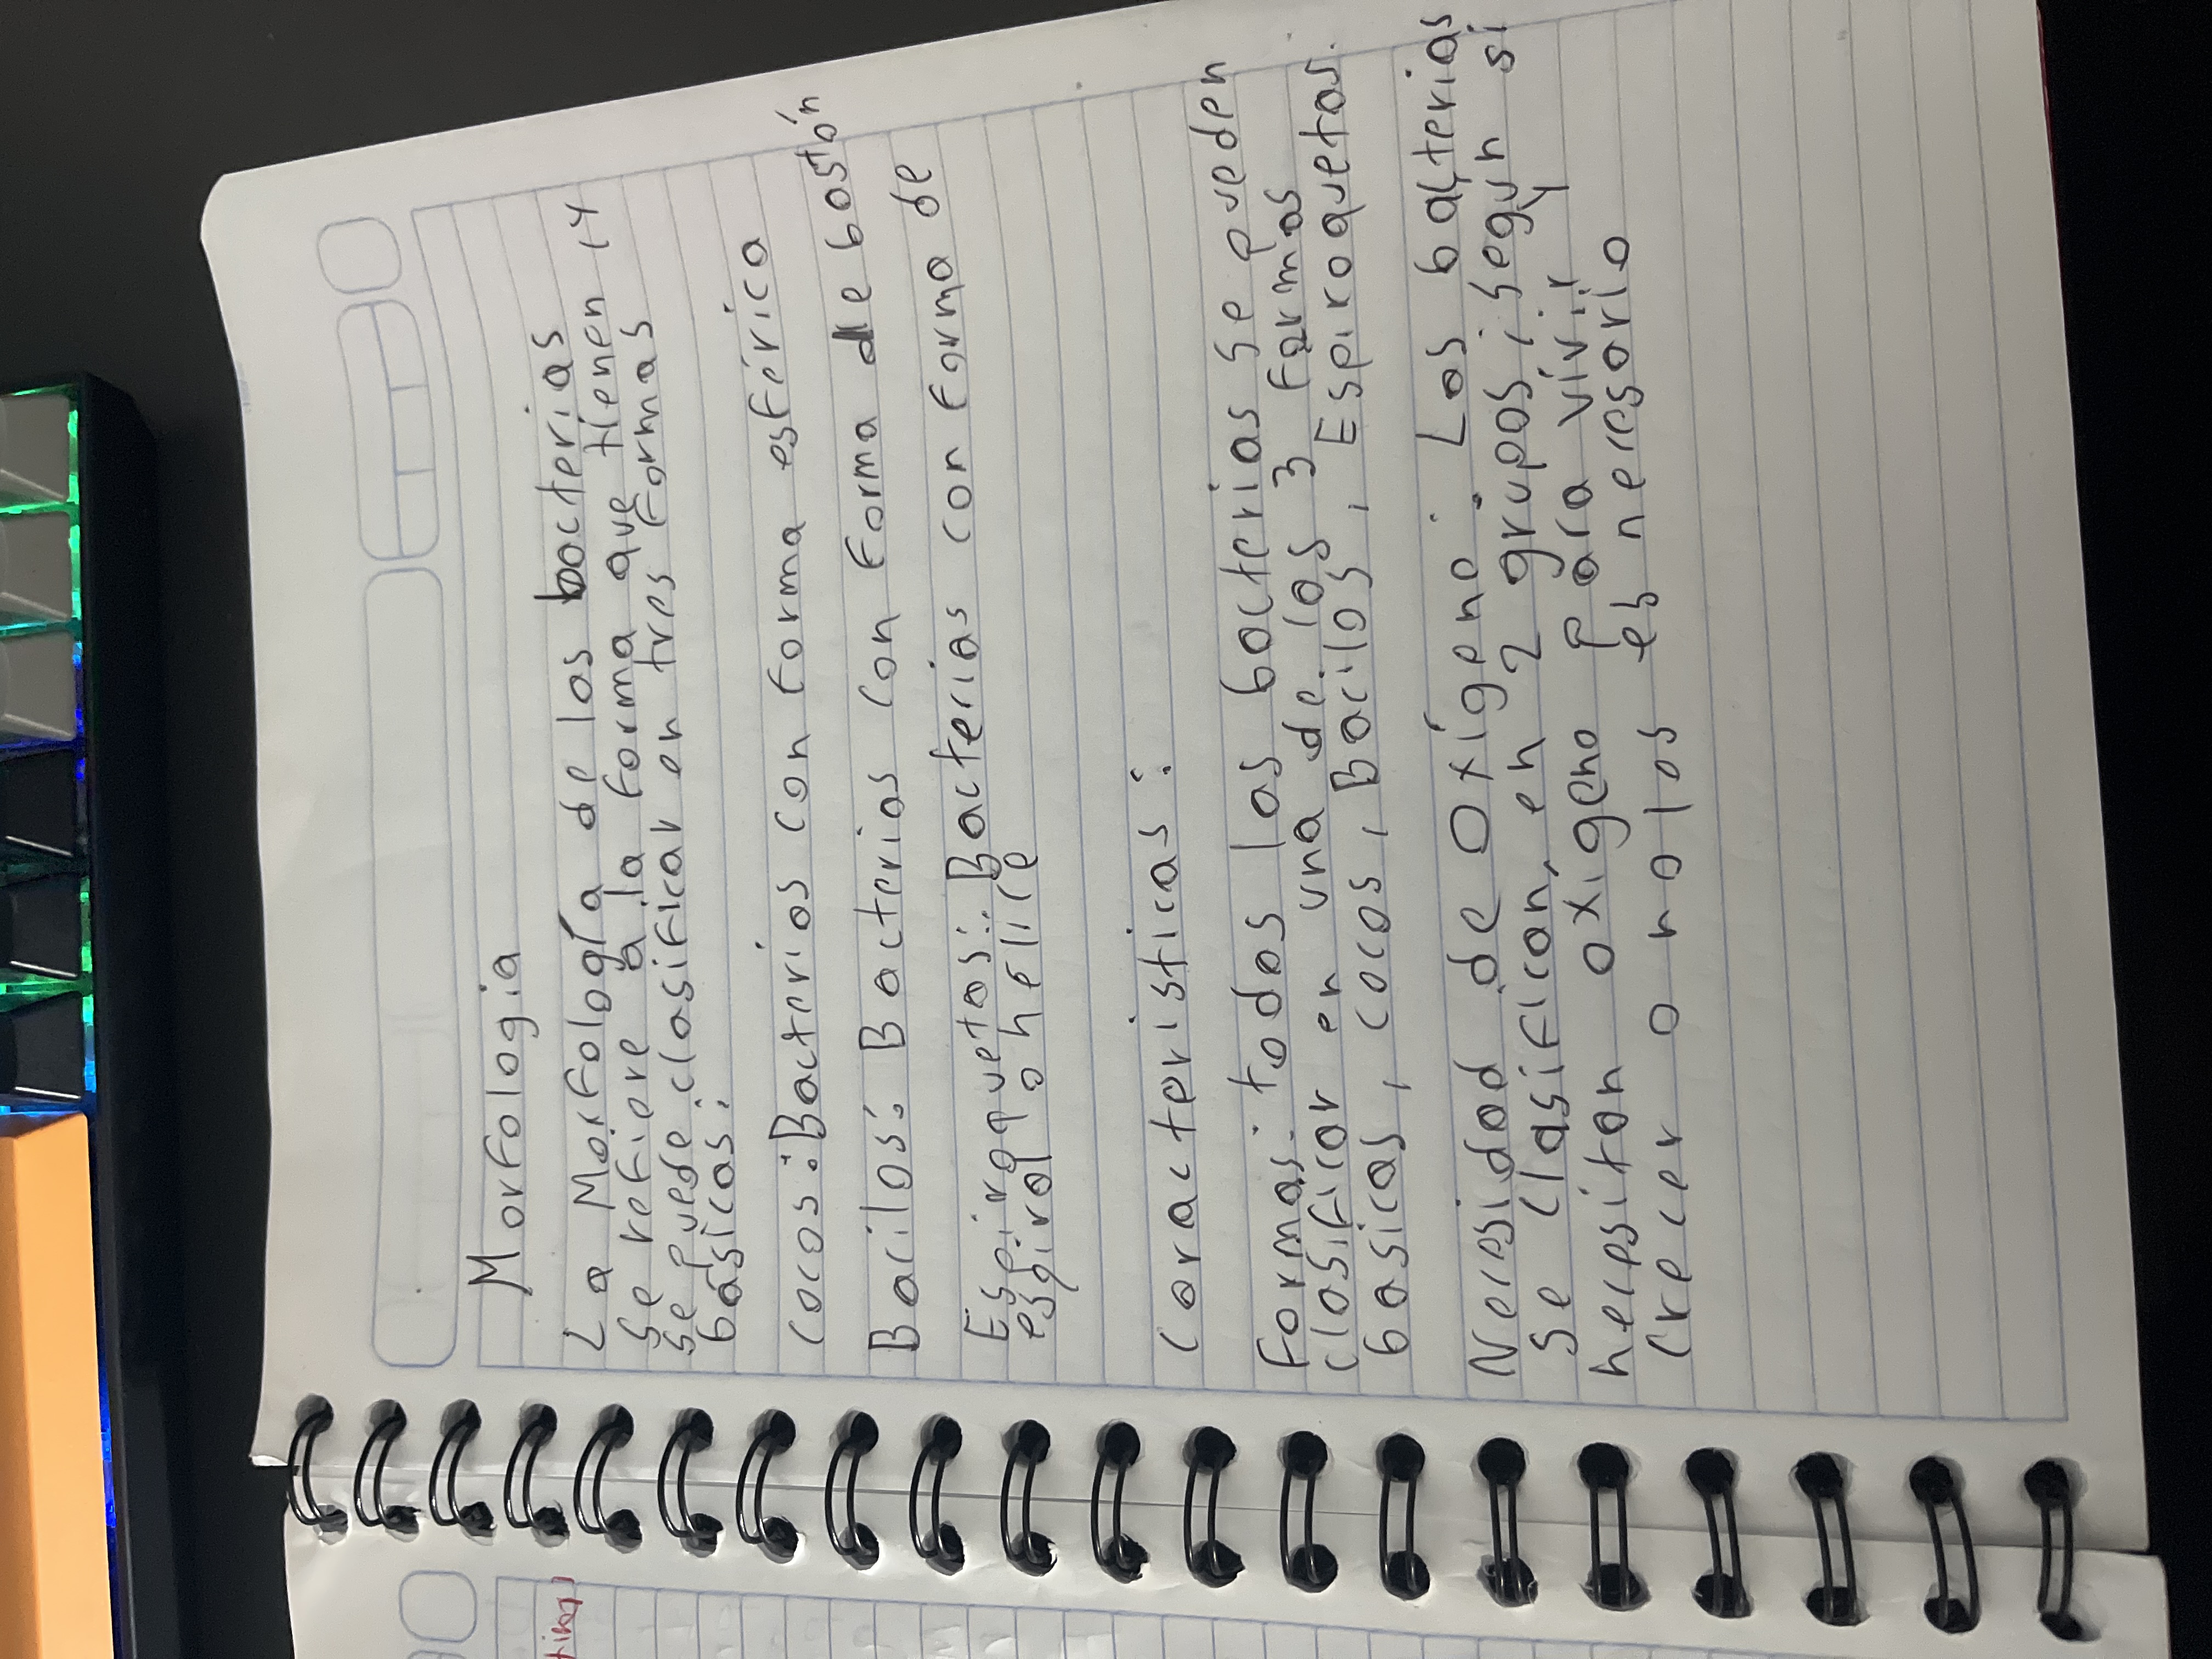 Morfologia
La Morfología de las bacterias
se refiere a la forma que tienen, y
se puede clasificar en tres formas
básicas:
Cocos: Bacterias con forma esférica
Bacilos: Bacterias con forma de bastón
Espiroquetas: Bacterias con forma de
espiral o helice
Caracteristicas:
Forma: todas las bacterias se pueden
clasificar en una de las 3 formas
basicas, cocos, Bacilos, Espiroquetas.
Necesidad de Oxígeno: Las bacterias
se clasifican, en 2 grupos, según si
necesitan oxigeno para vivir y
crecer o no los es necesario